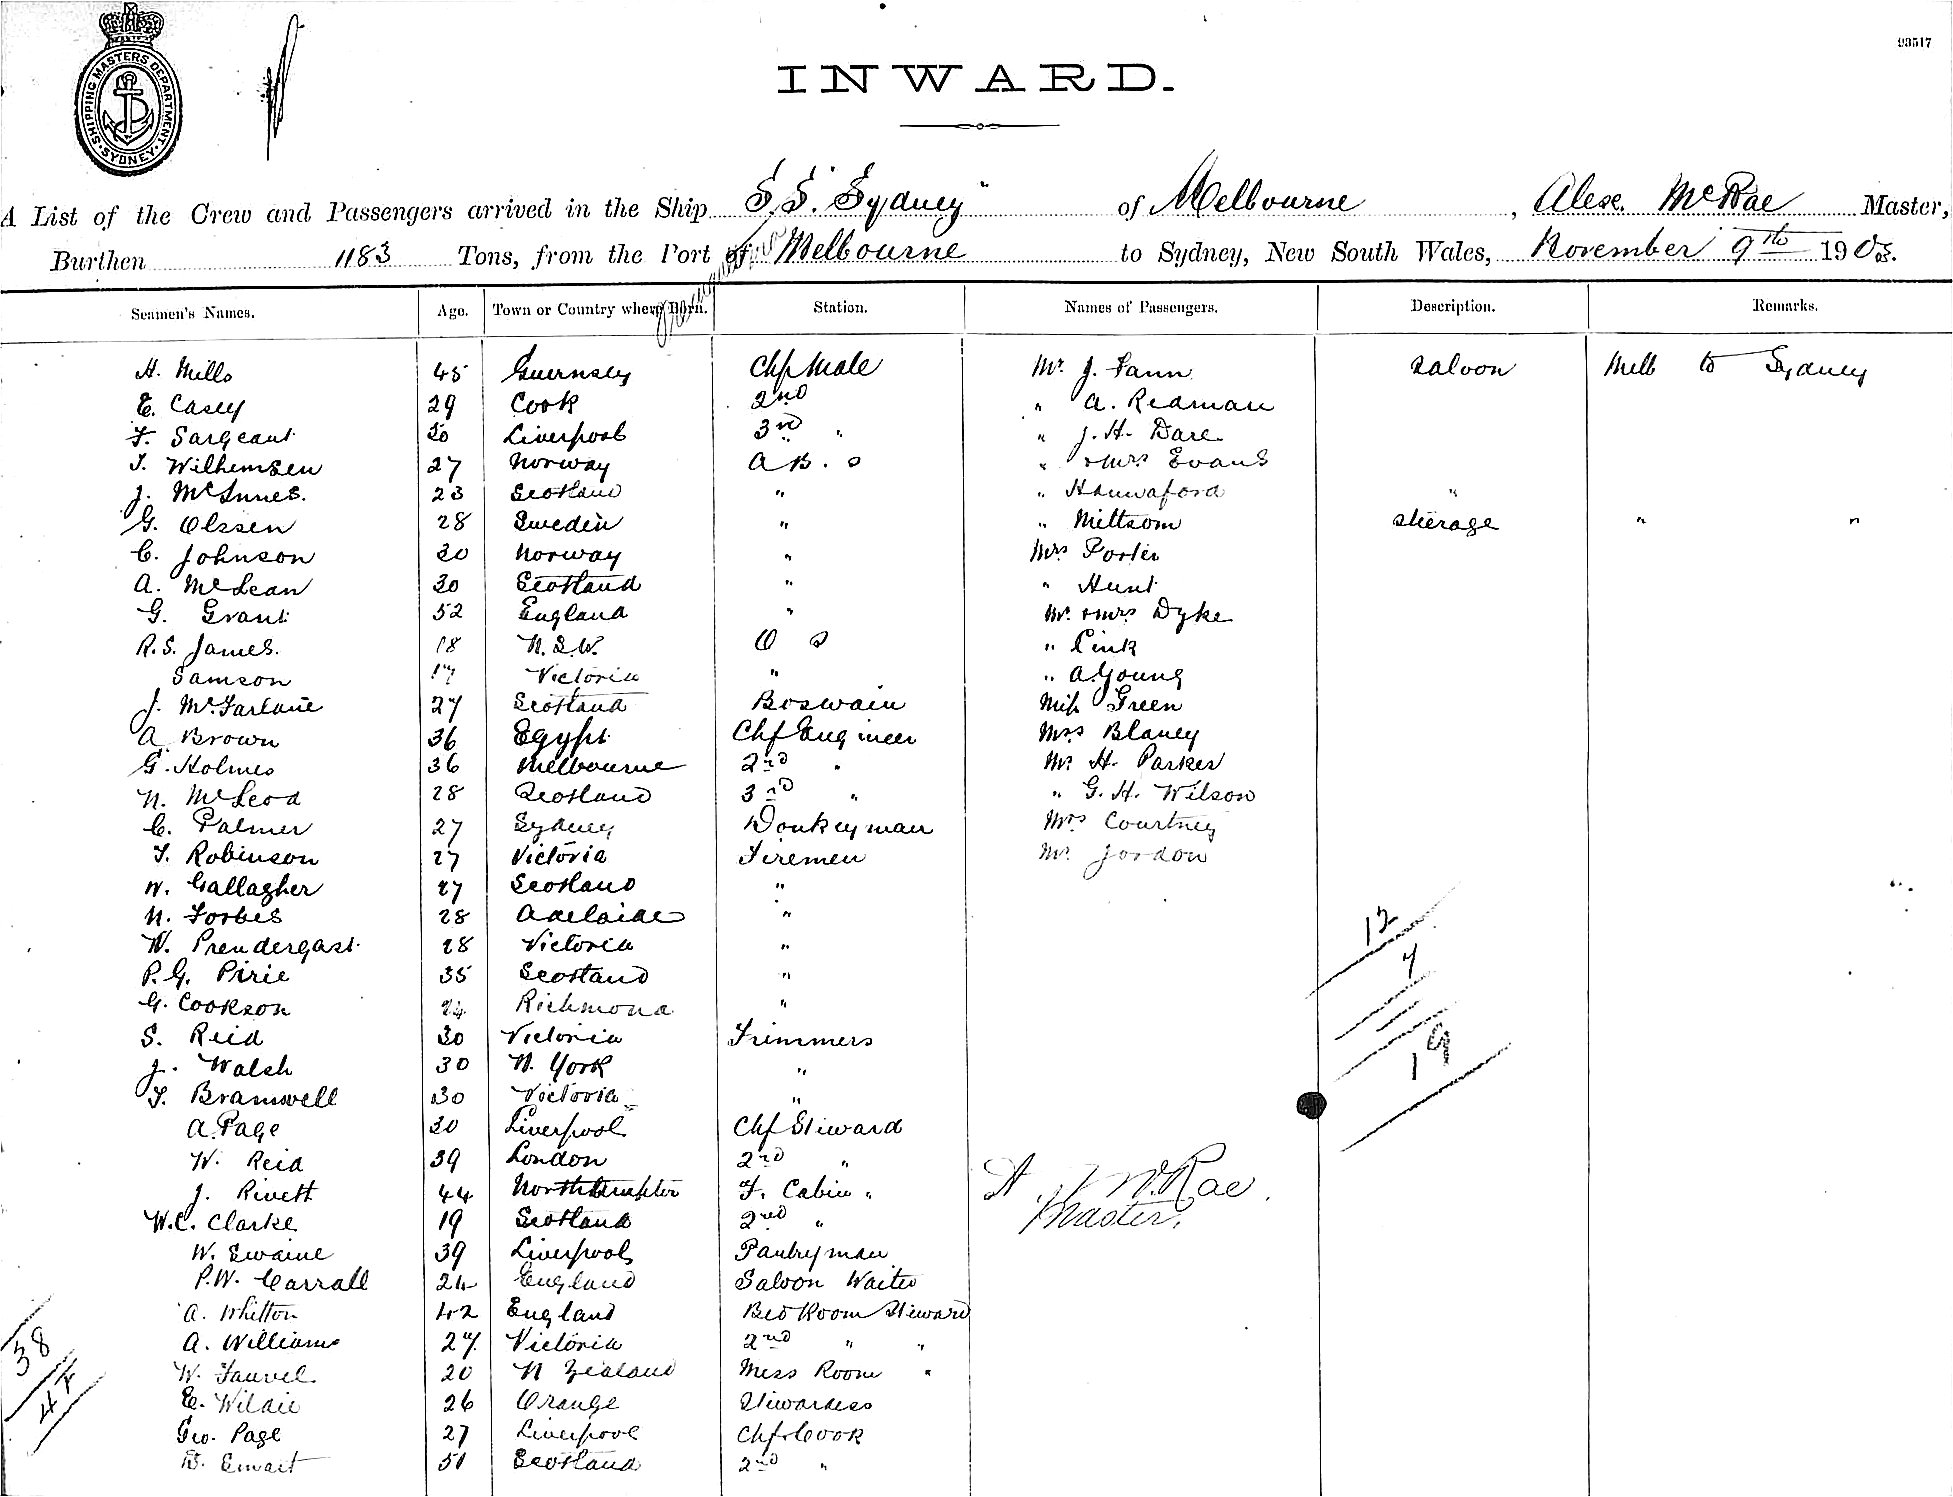 93517
SHIPPING MASTERS DEPARTMENT. SYDNEY
INWARD.
A List of the Crew and Passengers arrived in the Ship S.S. Sydney" of Melbourne, Alexr. McRae Master,
Burthen 1183 Tons, from the Port of Melbourne to Sydney, New South Wales, November 9th 1903.
Seamen's Names. Age. Town or Country where Born. Station. Names of Passengers. Description. Remarks.
H. Mills 45 Guernsey Chf Mate Mr. J. Fann Saloon Melb to Sydney
E. Casey 29 Cook 2nd " A. Redman
F. Sargeant 30 Liverpool 3rd " " J. H. Dare
T. Wilhemsen 27 Norway A B. s " & Mrs Evans
J. McInnes. 23 Scotland " " Hannaford "
G. Olssen 28 Sweden " " Miltsom Steerage " "
C. Johnson 30 Norway " Mrs Porter
A. McLean 30 Scotland " " Hunt
G. Grant 52 England " Mr. & Mrs Dyke
R. S. James. 18 N. S. W. O S " Pink
Samson 17 Victoria " " A. Young
J. McFarlane 27 Scotland Boswain Miss Green
A Brown 36 Egypt Chf Engineer Mrs Blaney
G. Holmes 36 Melbourne 2nd " Mr H. Parker
N. McLeod 28 Scotland 3rd " " G. H. Wilson
C. Palmer 27 Sydney Donkeyman Mrs Courtney
T. Robinson 27 Victoria Firemen Mr. Jordon
W. Gallagher 27 Scotland "
N. Forbes 28 Adelaide "
W. Prendergast 28 Victoria "
P. G. Pirie 35 Scotland "
G. Cookson 24 Richmond "
S. Reid 30 Victoria Trimmers
J. Walsh 30 N. York "
T. Bramwell 30 Victoria "
A. Page 30 Liverpool Chf Steward
W. Reid 39 London 2nd "
J. Rivett 44 Northampton F. Cabin "
W. C. Clarke 19 Scotland 2nd "
W. Swaine 39 Liverpool Pantryman
P. W. Carrall 24 England Saloon Waiter
A. Whitton 42 England Bed Room Steward
A. Williams 27 Victoria 2nd " "
W. Fauvel 20 N Zealand Mess Room "
E. Wildie 26 Orange Stewardess
Geo. Page 27 Liverpool Chf Cook
D. Ewart 51 Scotland 2nd "
12
7
19
McRae
Master.
38